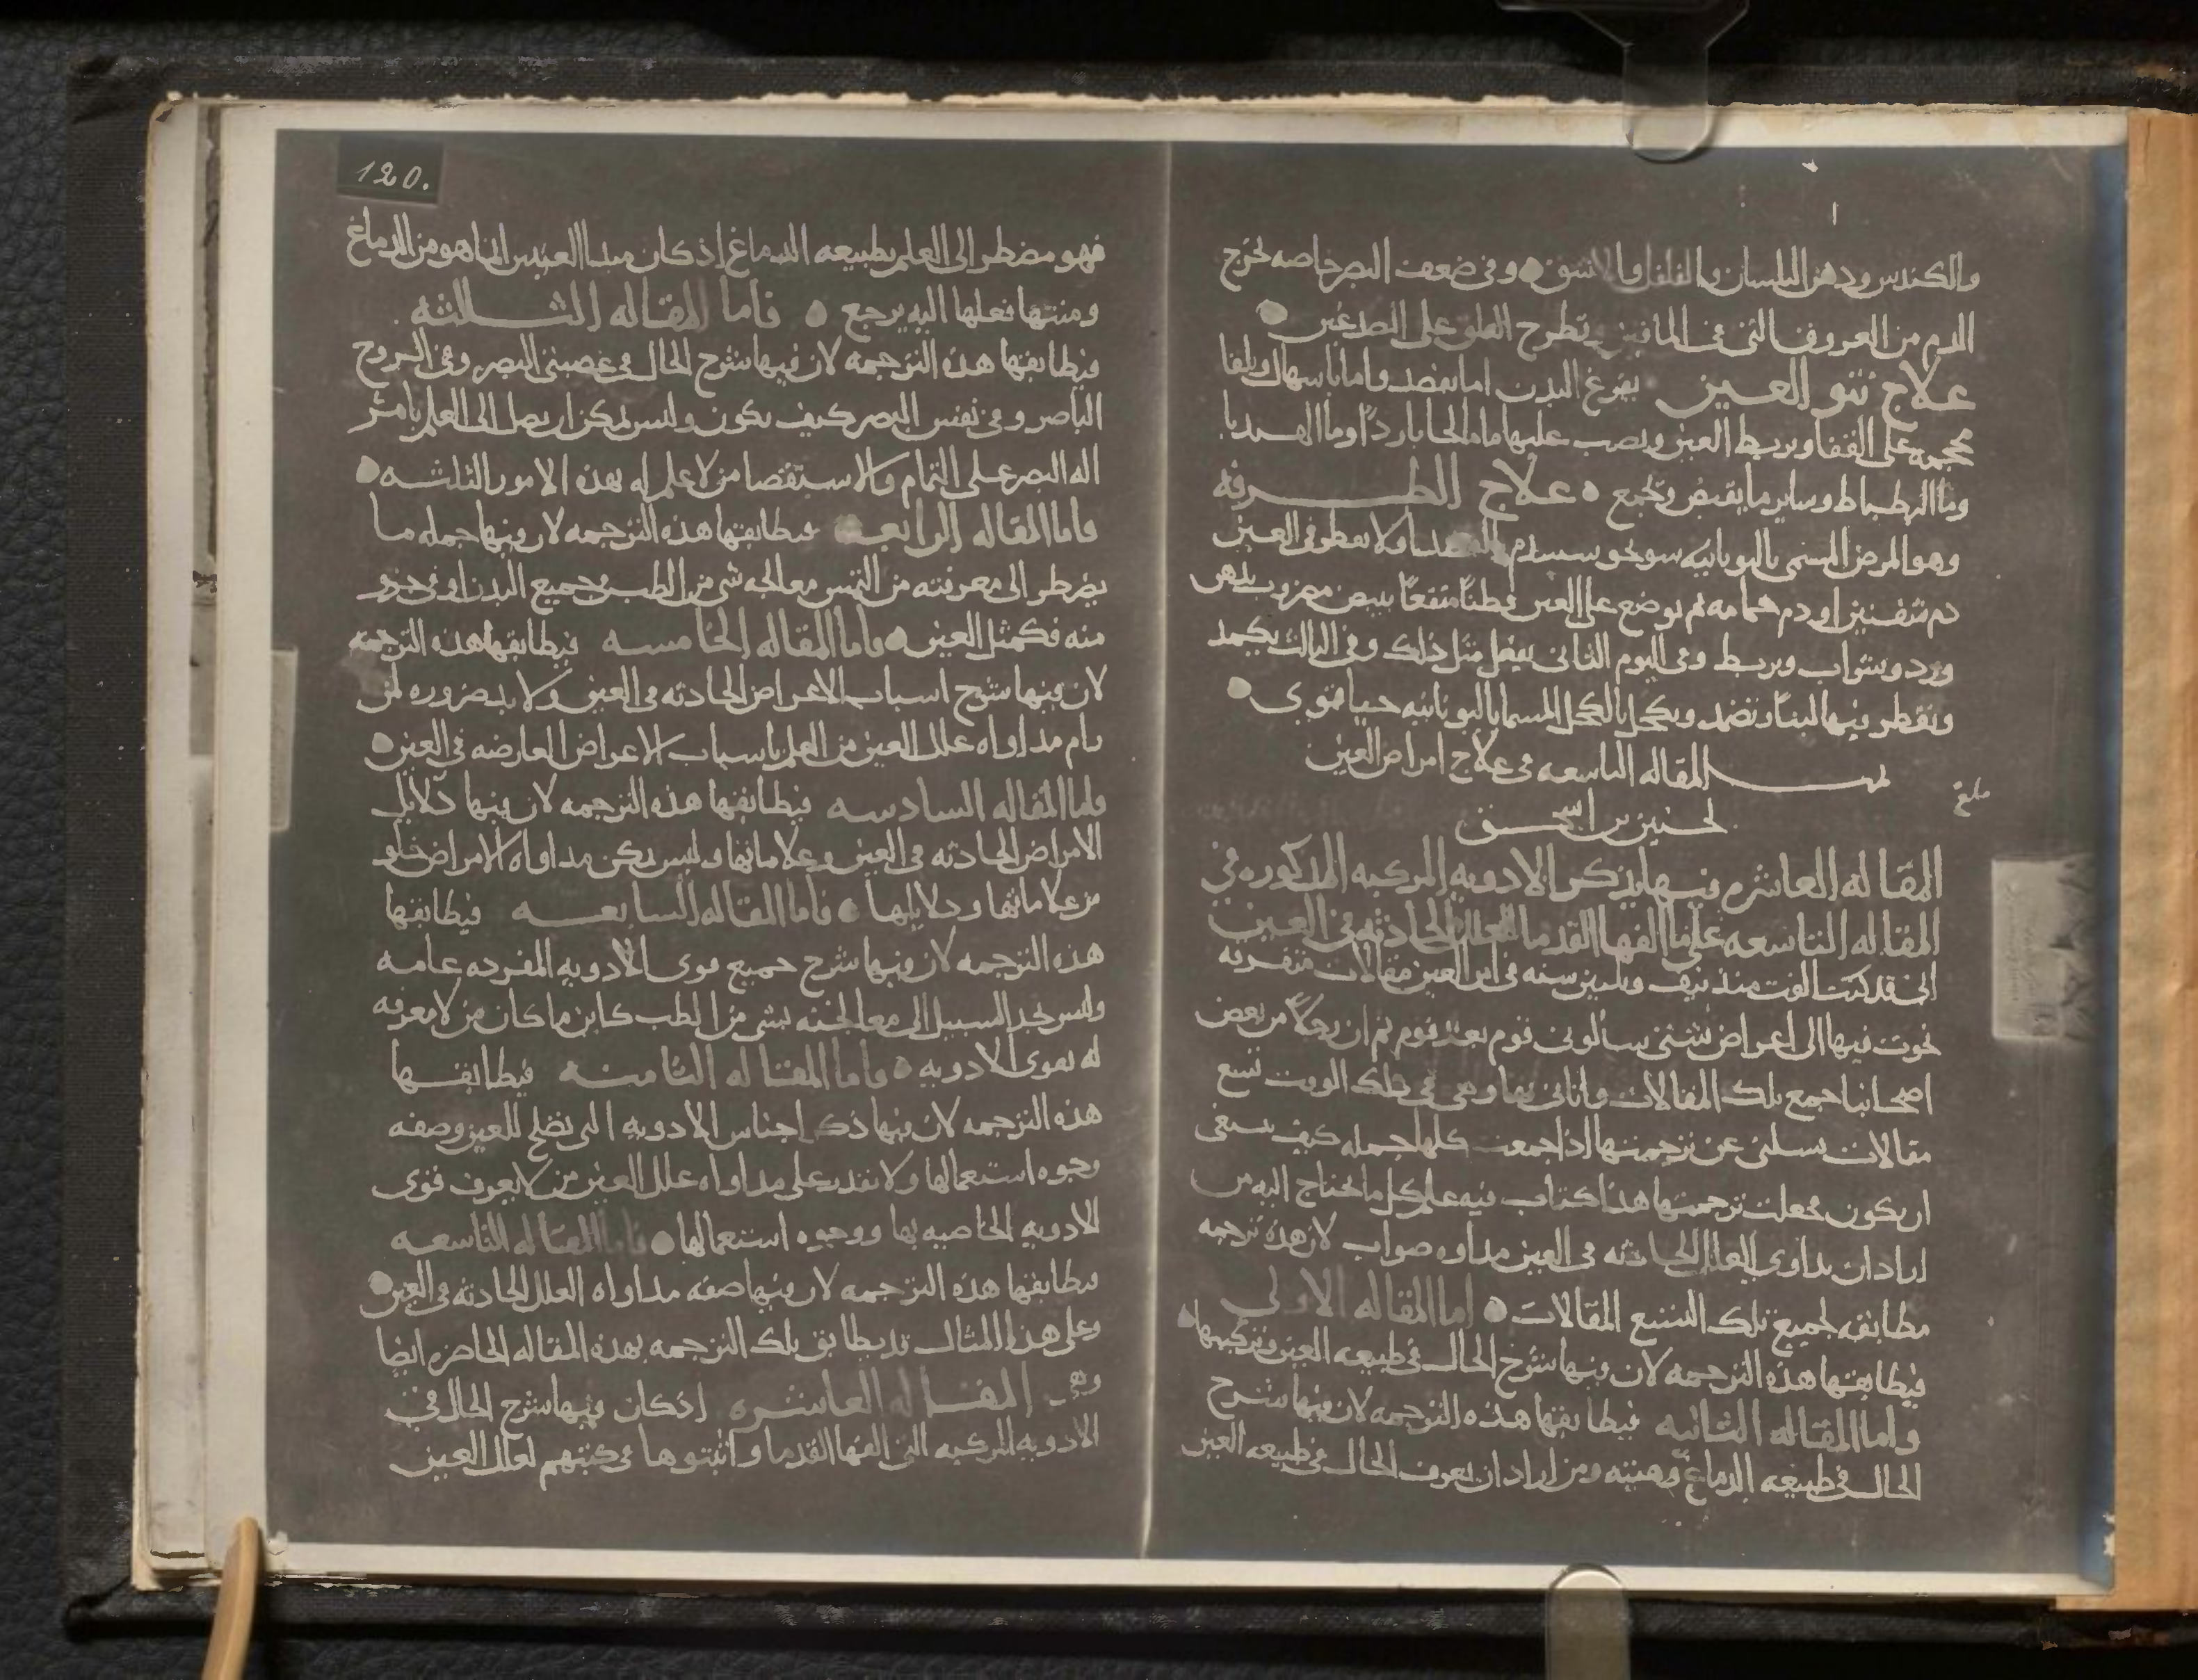 والكندس ودهن البلسان والفلفل والاشق وفي ضعف البصر خاصه يخرج
الدم من العروق التي في الماقين وتطرح العلق على الصدغين
علاج نتو العين يفرغ البدن اما بفصد واما باسهال ويلقا
محجمه على القفا ويربط العين ويصب عليها ما مالحا باردا وما الهندبا
وما البرطباط وساير ما يقبض ويجمع علاج الطرفه
وهو المرض المسمى باليونانيه ولا يقطر في العين
دم شفنين او دم حمامه ثم توضع على العين قطنا منقعا ببيض مضروب بدهن
ورد وبشراب ويربط وفي اليوم الثاني يفعل مثل ذلك وفي الثالث يكمد
ويقطر فيها لبنا وتضمد ويكحل بالكحل المسما باليونانيه
تمت المقاله التاسعه في علاج امراض العين
لحنين بن اسحق
بلغ
المقاله العاشره فيها يذكر الادويه المركبه المذكوره في
المقاله التاسعه على ما الفها القدما للعلل الحادثه في العين
اني قد كنت الفت منذ نيف وثلثين سنه في امر العين مقالات متفرقه
نحوت فيها الى اعراض شتى سالوني قوم بعد قوم ثم ان رجلا من بعض
اصحابنا جمع تلك المقالات واتاني بها وهي في ذلك الوقت تسع
مقالات يسلني عن ترجمتها اذا جمعت كلها جمله كيف ينبغي
ان يكون فجعلت ترجمتها هذا كتاب فيه علم كل ما يحتاج اليه من
اراد ان يداوي العلل الحادثه في العين مداوه صواب لان هذه ترجمه
مطابقه لجميع تلك التسع المقالات اما المقاله الاولى
فيطابقها هذه الترجمه لان فيها شرح الحال في طبيعه العين وتركيبها
واما المقاله الثانيه فيطابقها هذه الترجمه لان فيها شرح
الحال في طبيعه الدماغ وهيئته ومن اراد ان يعرف الحال في طبيعه العين
120.
فهو مضطر الى العلم بطبيعه الدماغ اذ كان مبدا العينين انما هو من الدماغ
ومنتها فعلها اليه يرجع فاما المقاله الثالثه
فيطابقها هذه الترجمه لان فيها شرح الحال في عصبتي البصر وفي الروح
الباصر وفي نفس البصر كيف يكون وليس يمكن ان يصل الى العلم بامر
اله البصر على التمام والاستقصا من لا علم له بهذه الامور الثلثه
فاما المقاله الرابعه فيطابقها هذه الترجمه لان فيها جمله ما
يضطر الى معرفته من التمس معالجه شي من الطب في جميع البدن او في جزو
منه فكمثل العين فاما المقاله الخامسه فيطابقها هذه الترجمه
لان فيها شرح اسباب الاعراض الحادثه في العين ولا بد ضروره لمن
رام مداواه علل العين من العلم باسباب الاعراض العارضه في العين
واما المقاله السادسه فيطابقها هذه الترجمه لان فيها دلايل
الامراض الحادثه في العين وعلاماتها وليس يمكن مداواه الامراض خلو
من علاماتها ودلايلها فاما المقاله السابعه فيطابقها
هذه الترجمه لان فيها شرح جميع قوى الادويه المفرده عامه
وليس يجد السبيل الى معالجته بشي من الطب كاين ما كان من لا معرفه
له بقوى الادويه واما المقاله الثامنه فيطابقها
هذه الترجمه لان فيها ذكر اجناس الادويه التي تصلح للعين وصفه
وجوه استعمالها ولا يقدر على مداواه علل العين من لا يعرف قوى
الادويه الخاصيه بها ووجوه استعمالها فاما المقاله التاسعه
فيطابقها هذه الترجمه لان فيها صفه مداواه العلل الحادثه في العين
وعلى هذا المثال قد يطابق تلك الترجمه بهذه المقاله الحاضره ايضا
وهي المقاله العاشره اذ كان فيها شرح الحال في
الادويه المركبه التي الفها القدما واثبتوها في كتبهم لعلل العين